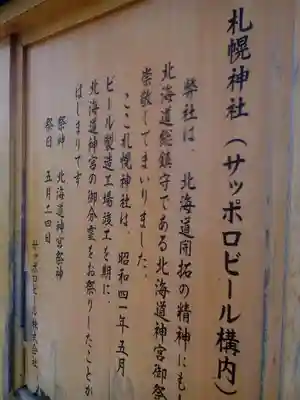 札幌神社（サッポロビール構内）
弊社は、北海道開拓の精神にも
北海道総鎮守である北海道神宮御祭
崇敬してまいりました。
ここ札幌神社は、昭和四一年五月
ビール製造工場竣工を期に、
北海道神宮の御分霊をお祭りしたことが
はじまりです
祭神　北海道神宮祭神
祭日　五月二四日
サッポロビール株式会社